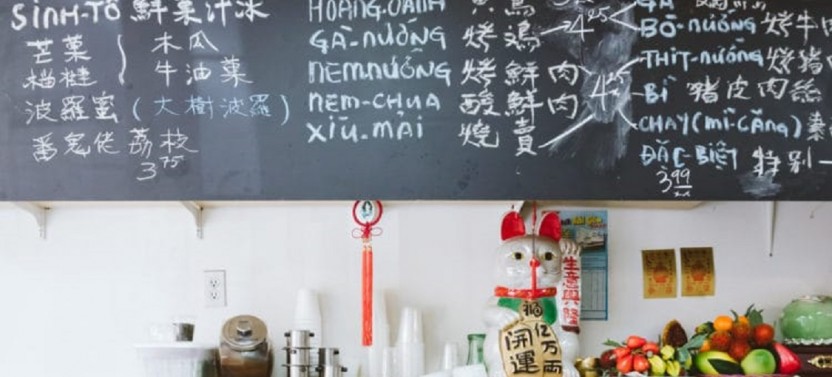 SINH-TỐ 鮮菓汁冰
芒菓 木瓜
榴槤 牛油菓
波羅蜜 (大樹波羅)
番鬼佬荔枝
3.75
HOÀNG.OANH
GÀ-NƯỚNG 烤鴉
NEMNƯỚNG 烤鮮肉
NEM-CHUA 酸鮮肉
XÍU.MẠI 燒賣
4.25
4.25
GÀ
BÒ-NƯỚNG 烤牛肉
THỊT-NƯỚNG 烤豬
BÌ 豬皮肉絲
CHAY(MÌ-CĂNG) 素
ĐẶC-BIỆT 特別一
3.99
生意興隆
福
亿万両
開運